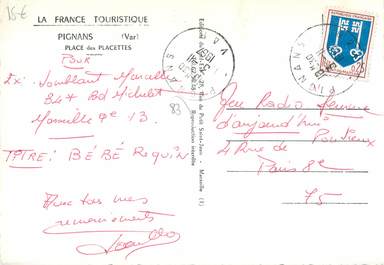 15€
LA FRANCE TOURISTIQUE
PIGNANS (Var)
PLACE DES PLACETTES
POUR
Ex: Jamblant Marcelle
84 Bd Michelet
Marseille 9e 13
TITRE: BÉBÉ REQUIN
Avec tous mes
remerciements
83
Rue du Petit Saint-Jean - Marseille (1)
Reproduction interdite
PIGNANS
VAR
Jeu Radio Femme
d'aujourd'hui
4 Rue de Ponthieu
Paris 8e
75